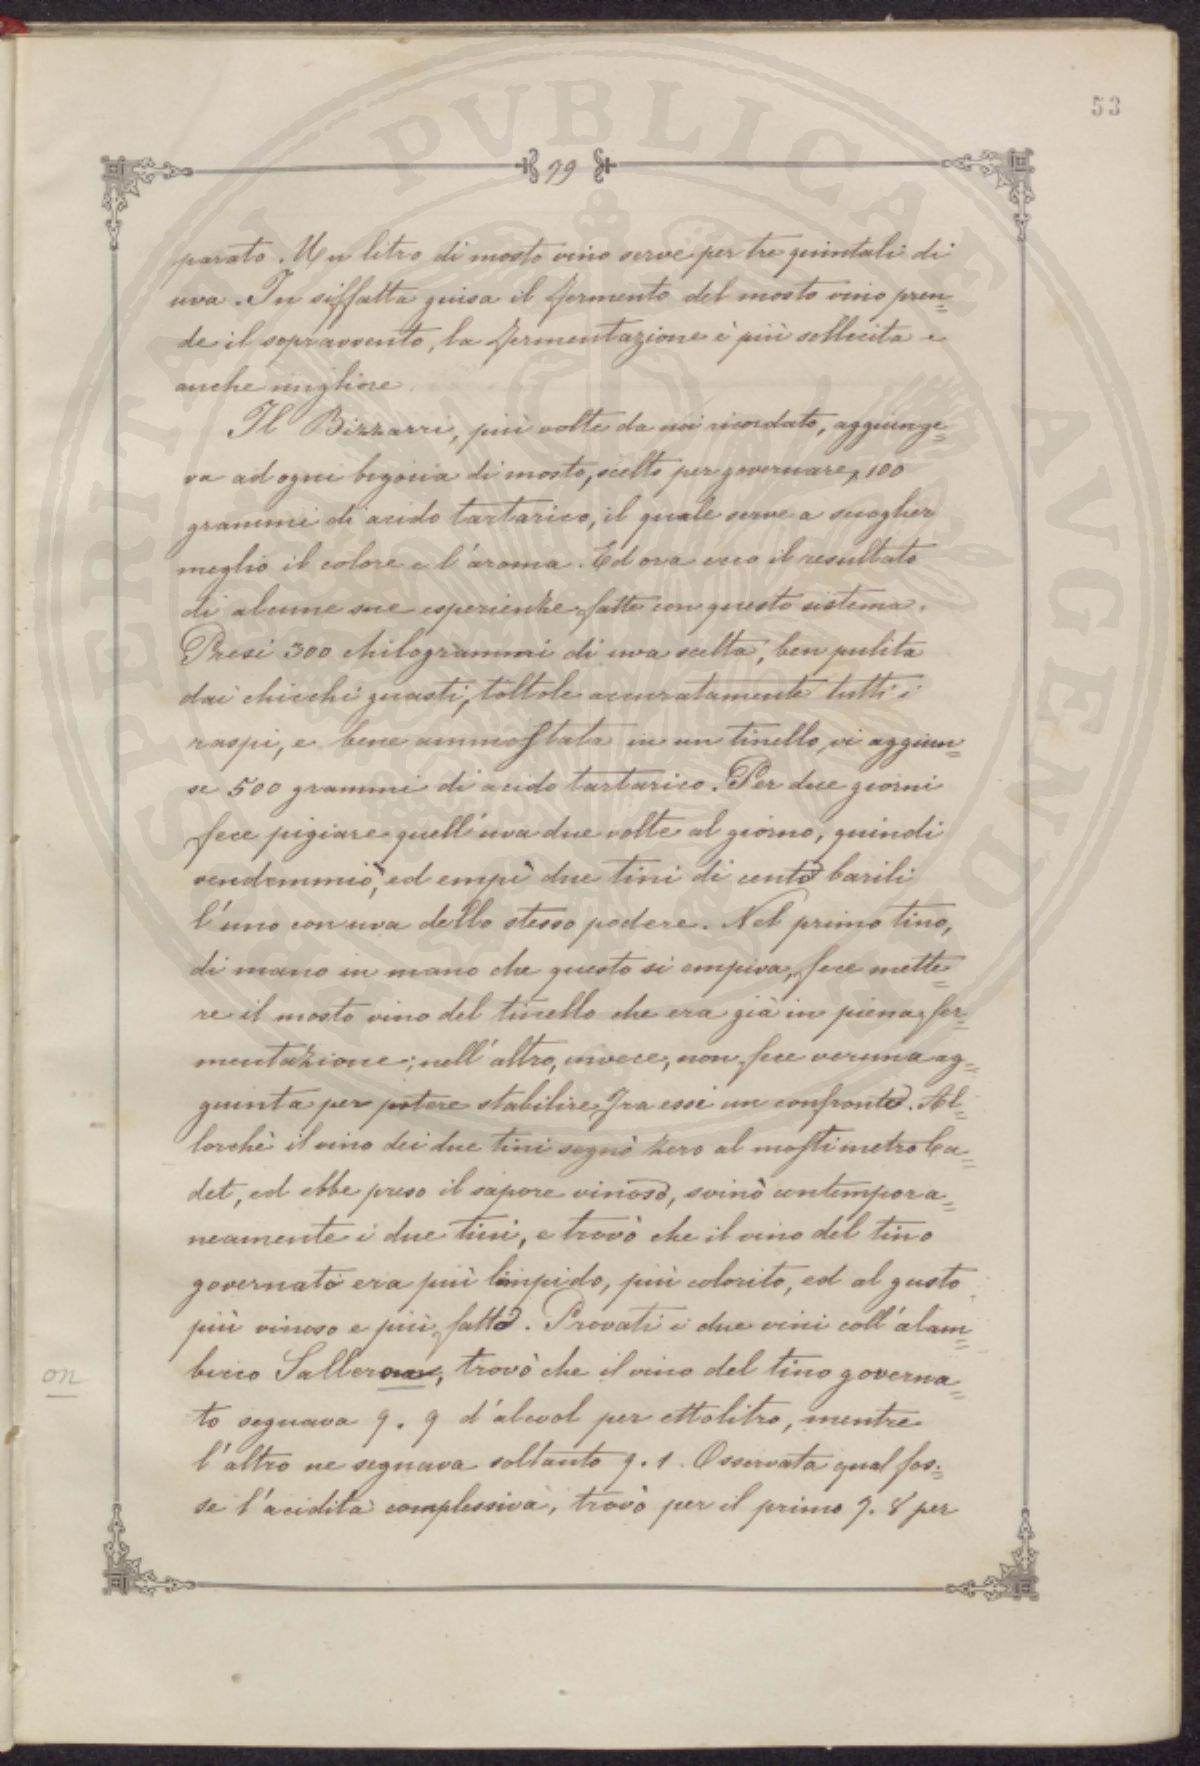 53
79
parato. Un litro di mosto vino serve per tre quintali di
uva. In siffatta guisa il fermento del mosto vino pren=
de il sopravvento, la fermentazione è più sollecita e
anche migliore.
Il Bizzarri, più volte da noi ricordato, aggiunge=
va ad ogni bigoncia di mosto, scelto per governare, 100
grammi di acido tartarico, il quale serve a sciogliere
meglio il colore e l'aroma. Ed ora ecco il resultato
di alcune sue esperienze fatte con questo sistema.
Presi 300 chilogrammi di uva scelta, ben pulita
dai chicchi guasti, toltole accuratamente tutti i
raspi, e bene ammostata in un tinello, vi aggiun=
se 500 grammi di acido tartarico. Per due giorni
fece pigiare quell'uva due volte al giorno, quindi
vendemmiò, ed empì due tini di cento barili
l'uno con uva dello stesso podere. Nel primo tino,
di mano in mano che questo si empiva, fece mette=
re il mosto vino del tinello che era già in piena fer=
mentazione; nell'altro, invece, non fece veruna ag=
giunta per potere stabilire fra essi un confronto. Al=
lorchè il vino dei due tini segnò zero al mostimetro Ca=
det, ed ebbe preso il sapore vinoso, svinò contempora=
neamente i due tini, e trovò che il vino del tino
governato era più limpido, più colorito, ed al gusto
più vinoso e più fatto. Provati i due vini coll'alam=
bicco Salleron, trovò che il vino del tino governa=
on
to segnava 9.9 d'alcol per ettolitro, mentre
l'altro ne segnava soltanto 9.1. Osservata qual fos=
se l'acidità complessiva, trovò per il primo 7.8 per
PUBLICAE
AUGENDAE
PROSPERITATI